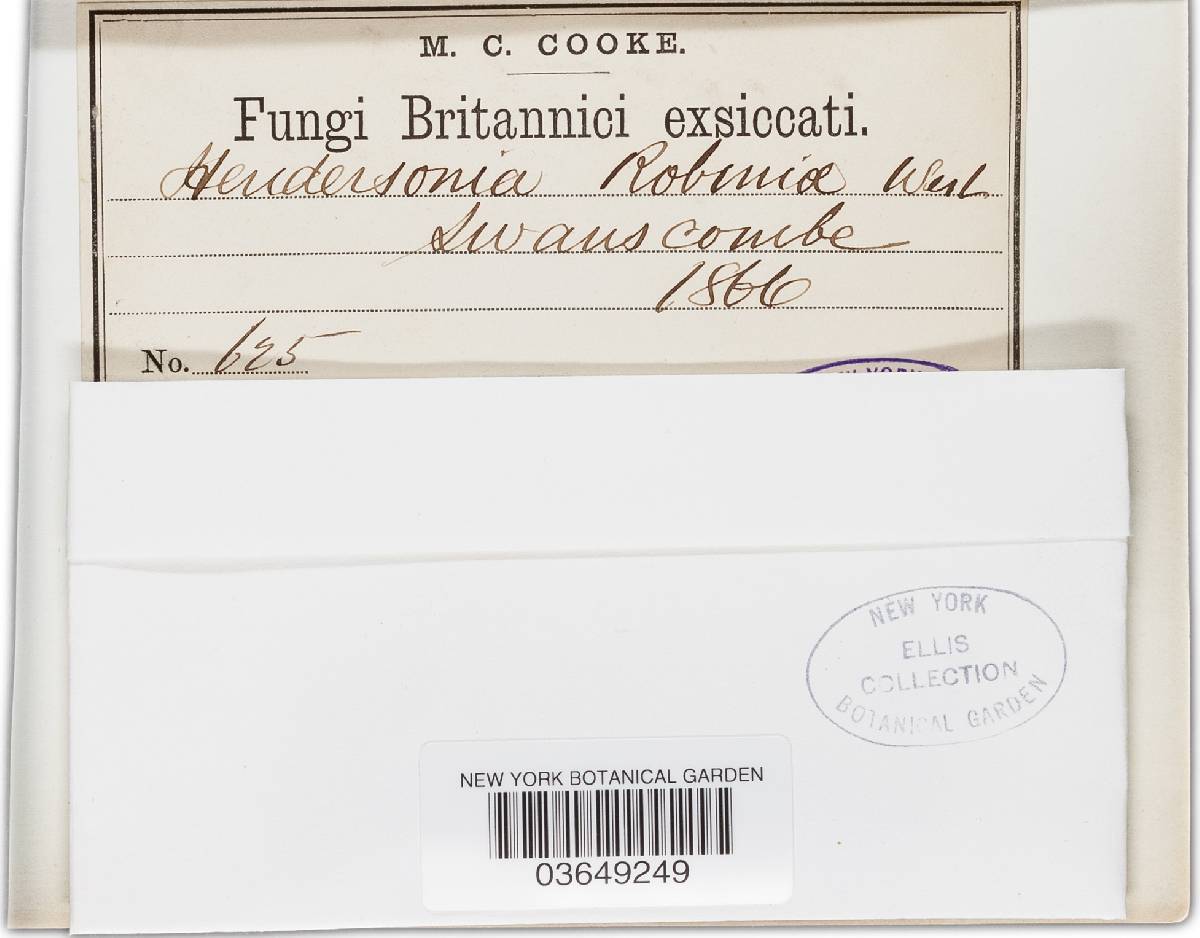 M. C. COOKE.
Fungi Britannici exsiccati.
Hendersonia Robiniæ West.
Swanscombe
1866
No. 625
NEW YORK
NEW YORK
ELLIS
COLLECTION
BOTANICAL GARDEN
NEW YORK BOTANICAL GARDEN
03649249